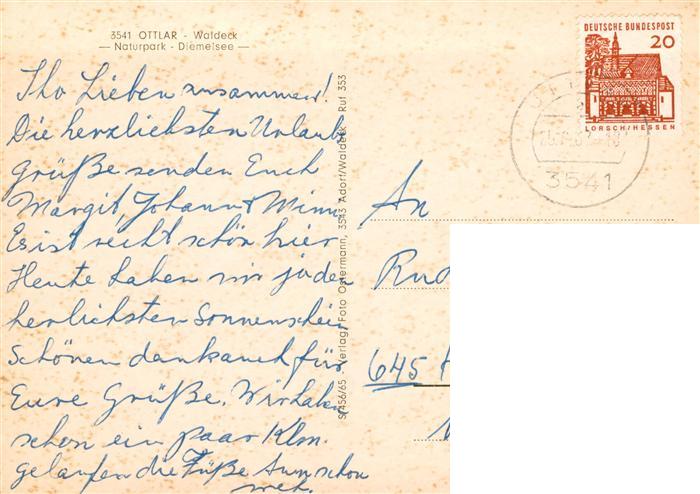 3541 OTTLAR - Waldeck
— Naturpark - Diemelsee —
Ihr Lieben zusammen!
Die herzlichsten Urlaubs
grüße senden Euch
Margit, Johann & Mimi
Es ist recht schön hier
Heute haben wir ja den
herlichsten Sonnenschein
Schönen dank auch für
Eure Grüße. Wir haben
schon ein paar Klm.
gelaufen die Füße tun schon
weh.
S/456/65 Verlag: Foto Ostermann, 3543 Adorf/Waldeck Ruf 353
DEUTSCHE BUNDESPOST
20
LORSCH/HESSEN
3541
An
Rud
645 H